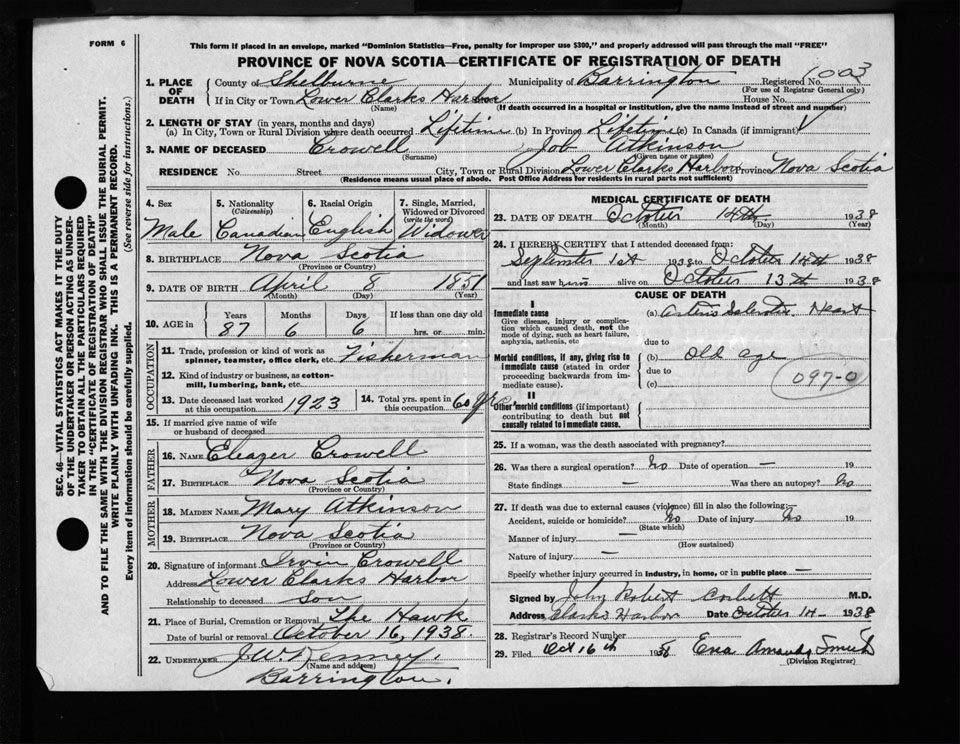 FORM 6
This form if placed in an envelope, marked "Dominion Statistics—Free, penalty for improper use $300," and properly addressed will pass through the mail "FREE"
PROVINCE OF NOVA SCOTIA—CERTIFICATE OF REGISTRATION OF DEATH
SEC. 46—VITAL STATISTICS ACT MAKES IT THE DUTY
OF THE UNDERTAKER OR PERSON ACTING AS UNDER-
TAKER TO OBTAIN ALL THE PARTICULARS REQUIRED
IN THE "CERTIFICATE OF REGISTRATION OF DEATH"
AND TO FILE THE SAME WITH THE DIVISION REGISTRAR WHO SHALL ISSUE THE BURIAL PERMIT.
WRITE PLAINLY WITH UNFADING INK. THIS IS A PERMANENT RECORD.
Every item of information should be carefully supplied. (See reverse side for instructions.)
1. PLACE OF DEATH County of Shelburne Municipality of Barrington Registered No. 003
(For use of Registrar General only)
If in City or Town Lower Clarks Harbor House No.
(Name) (If death occurred in a hospital or institution, give the name instead of street and number)
2. LENGTH OF STAY (in years, months and days)
(a) In City, Town or Rural Division where death occurred Lifetime (b) In Province Lifetime (c) In Canada (if immigrant)
3. NAME OF DECEASED Crowell Job Atkinson
(Surname) (Given name or names)
RESIDENCE No. Street City, Town or Rural Division Lower Clarks Harbor Province Nova Scotia
(Residence means usual place of abode. Post Office Address for residents in rural parts not sufficient)
4. Sex 5. Nationality (Citizenship) 6. Racial Origin 7. Single, Married, Widowed or Divorced (write the word)
Male Canadian English Widower
8. BIRTHPLACE Nova Scotia
(Province or Country)
9. DATE OF BIRTH April 8 1851
(Month) (Day) (Year)
10. AGE in Years Months Days If less than one day old
87 6 6 hrs. or min.
OCCUPATION
11. Trade, profession or kind of work as spinner, teamster, office clerk, etc. Fisherman
12. Kind of industry or business, as cotton-mill, lumbering, bank, etc.
13. Date deceased last worked at this occupation 1923 14. Total yrs. spent in this occupation 60 yrs
15. If married give name of wife or husband of deceased
FATHER
16. NAME Eleazer Crowell
17. BIRTHPLACE Nova Scotia
(Province or Country)
MOTHER
18. MAIDEN NAME Mary Atkinson
19. BIRTHPLACE Nova Scotia
(Province or Country)
20. Signature of informant Irvin Crowell
Address Lower Clarks Harbor
Relationship to deceased Son
21. Place of Burial, Cremation or Removal The Hawk
Date of burial or removal October 16, 1938
22. UNDERTAKER J.W. Kenney,
(Name and address)
Barrington.
MEDICAL CERTIFICATE OF DEATH
23. DATE OF DEATH October 14th 1938
(Month) (Day) (Year)
24. I HEREBY CERTIFY that I attended deceased from:
September 1st 1938 to October 14th 1938
and last saw him alive on October 13th 1938
CAUSE OF DEATH
I
Immediate cause
Give disease, injury or complication which caused death, not the mode of dying, such as heart failure, asphyxia, asthenia, etc
(a) Arterio Sclerotic Heart
due to
Morbid conditions, if any, giving rise to immediate cause (stated in order proceeding backwards from immediate cause).
(b) old age
due to
(c)
097-0
II
Other morbid conditions (if important) contributing to death but not causally related to immediate cause.
25. If a woman, was the death associated with pregnancy?
26. Was there a surgical operation? No Date of operation — 19
State findings — Was there an autopsy? No
27. If death was due to external causes (violence) fill in also the following:
Accident, suicide or homicide? No Date of injury No 19
(State which)
Manner of injury —
(How sustained)
Nature of injury —
Specify whether injury occurred in industry, in home, or in public place —
Signed by John Robert Corbett M.D.
Address Clarks Harbor Date October 14 1938
28. Registrar's Record Number
29. Filed Oct 16th 1938 Ena Amanda Smith
(Division Registrar)